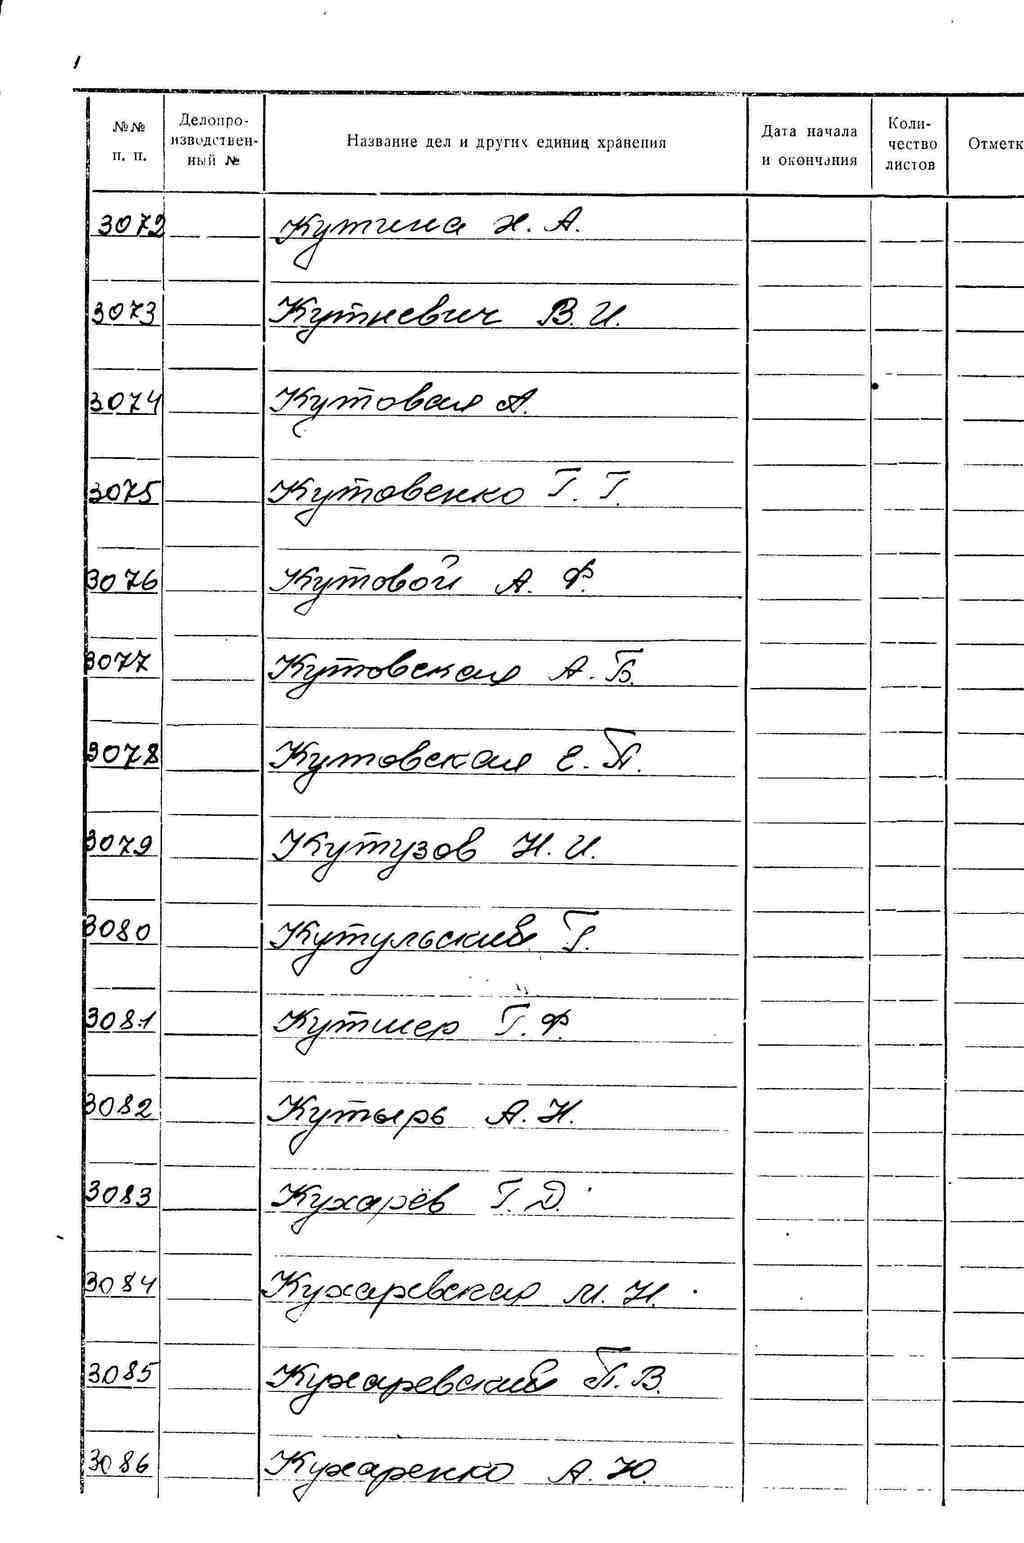 №№ п. п. Делопроизводственный № Название дел и других единиц хранения Дата начала и окончания Количество листов Отметк
3072 Кутина Н. А.
3073 Кутневич В. И.
3074 Кутовая А.
3075 Кутовенко Г. Г.
3076 Кутовой А. Ф.
3077 Кутовская А. Б.
3078 Кутовская Е. П.
3079 Кутузов Н. И.
3080 Кутульский Г.
3081 Кутшер Г. Ф.
3082 Кутырь А. Н.
3083 Кухарёв Г. Д.
3084 Кухаревская М. Н.
3085 Кухаревский П. В.
3086 Кухаренко А. Ю.